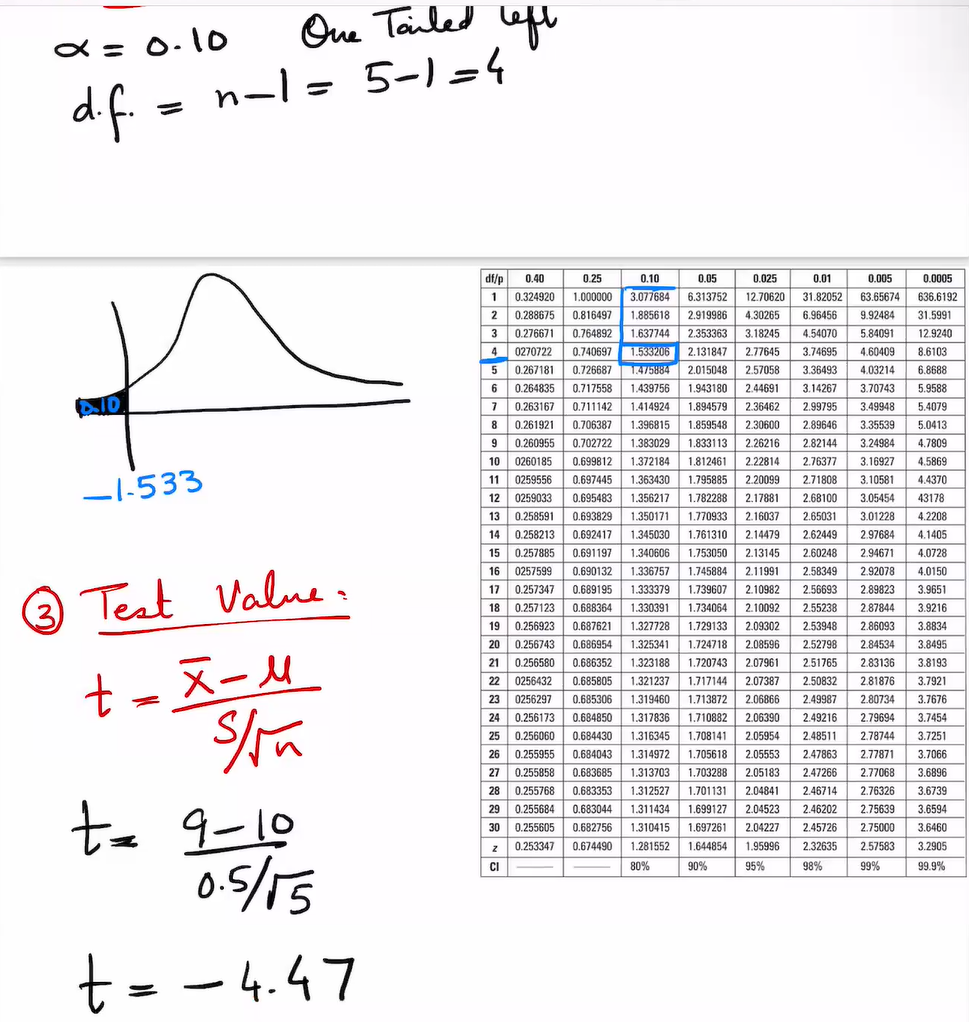 α = 0.10 One Tailed left
d.f. = n-1 = 5-1 = 4
0.10
-1.533
③ Test Value:
t = x̄-μ / S/√n
t = 9-10 / 0.5/√5
t = -4.47
df/p 0.40 0.25 0.10 0.05 0.025 0.01 0.005 0.0005
1 0.324920 1.000000 3.077684 6.313752 12.70620 31.82052 63.65674 636.6192
2 0.288675 0.816497 1.885618 2.919986 4.30265 6.96456 9.92484 31.5991
3 0.276671 0.764892 1.637744 2.353363 3.18245 4.54070 5.84091 12.9240
4 0270722 0.740697 1.533206 2.131847 2.77645 3.74695 4.60409 8.6103
5 0.267181 0.726687 1.475884 2.015048 2.57058 3.36493 4.03214 6.8688
6 0.264835 0.717558 1.439756 1.943180 2.44691 3.14267 3.70743 5.9588
7 0.263167 0.711142 1.414924 1.894579 2.36462 2.99795 3.49948 5.4079
8 0.261921 0.706387 1.396815 1.859548 2.30600 2.89646 3.35539 5.0413
9 0.260955 0.702722 1.383029 1.833113 2.26216 2.82144 3.24984 4.7809
10 0260185 0.699812 1.372184 1.812461 2.22814 2.76377 3.16927 4.5869
11 0259556 0.697445 1.363430 1.795885 2.20099 2.71808 3.10581 4.4370
12 0259033 0.695483 1.356217 1.782288 2.17881 2.68100 3.05454 43178
13 0.258591 0.693829 1.350171 1.770933 2.16037 2.65031 3.01228 4.2208
14 0.258213 0.692417 1.345030 1.761310 2.14479 2.62449 2.97684 4.1405
15 0.257885 0.691197 1.340606 1.753050 2.13145 2.60248 2.94671 4.0728
16 0257599 0.690132 1.336757 1.745884 2.11991 2.58349 2.92078 4.0150
17 0.257347 0.689195 1.333379 1.739607 2.10982 2.56693 2.89823 3.9651
18 0.257123 0.688364 1.330391 1.734064 2.10092 2.55238 2.87844 3.9216
19 0.256923 0.687621 1.327728 1.729133 2.09302 2.53948 2.86093 3.8834
20 0.256743 0.686954 1.325341 1.724718 2.08596 2.52798 2.84534 3.8495
21 0.256580 0.686352 1.323188 1.720743 2.07961 2.51765 2.83136 3.8193
22 0256432 0.685805 1.321237 1.717144 2.07387 2.50832 2.81876 3.7921
23 0256297 0.685306 1.319460 1.713872 2.06866 2.49987 2.80734 3.7676
24 0.256173 0.684850 1.317836 1.710882 2.06390 2.49216 2.79694 3.7454
25 0.256060 0.684430 1.316345 1.708141 2.05954 2.48511 2.78744 3.7251
26 0.255955 0.684043 1.314972 1.705618 2.05553 2.47863 2.77871 3.7066
27 0.255858 0.683685 1.313703 1.703288 2.05183 2.47266 2.77068 3.6896
28 0.255768 0.683353 1.312527 1.701131 2.04841 2.46714 2.76326 3.6739
29 0.255684 0.683044 1.311434 1.699127 2.04523 2.46202 2.75639 3.6594
30 0.255605 0.682756 1.310415 1.697261 2.04227 2.45726 2.75000 3.6460
z 0.253347 0.674490 1.281552 1.644854 1.95996 2.32635 2.57583 3.2905
CI 80% 90% 95% 98% 99% 99.9%